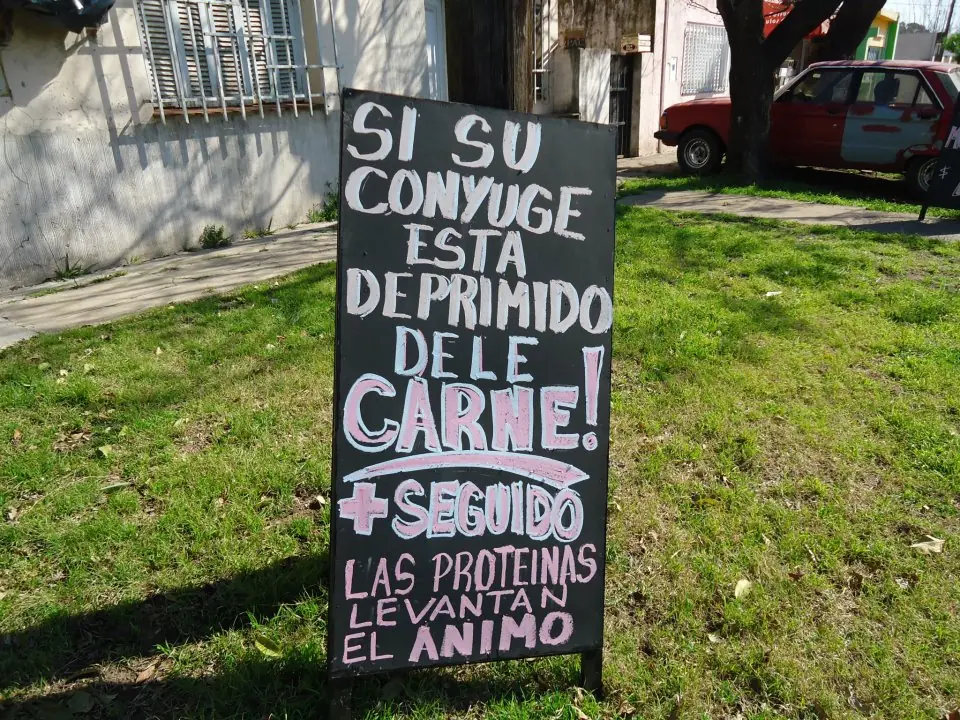 SI SU
CONYUGE
ESTA
DEPRIMIDO
DELE
CARNE!
+ SEGUIDO
LAS PROTEINAS
LEVANTAN
EL ANIMO